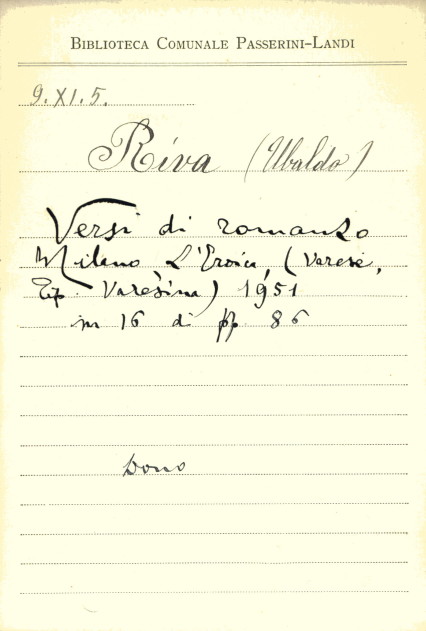 BIBLIOTECA COMUNALE PASSERINI-LANDI
9.XI.5.
Riva (Ubaldo)
Versi di romanzo
Milano L'Eroica, (Varese,
Tip. Varesina) 1951
in 16 di pp. 86
Dono